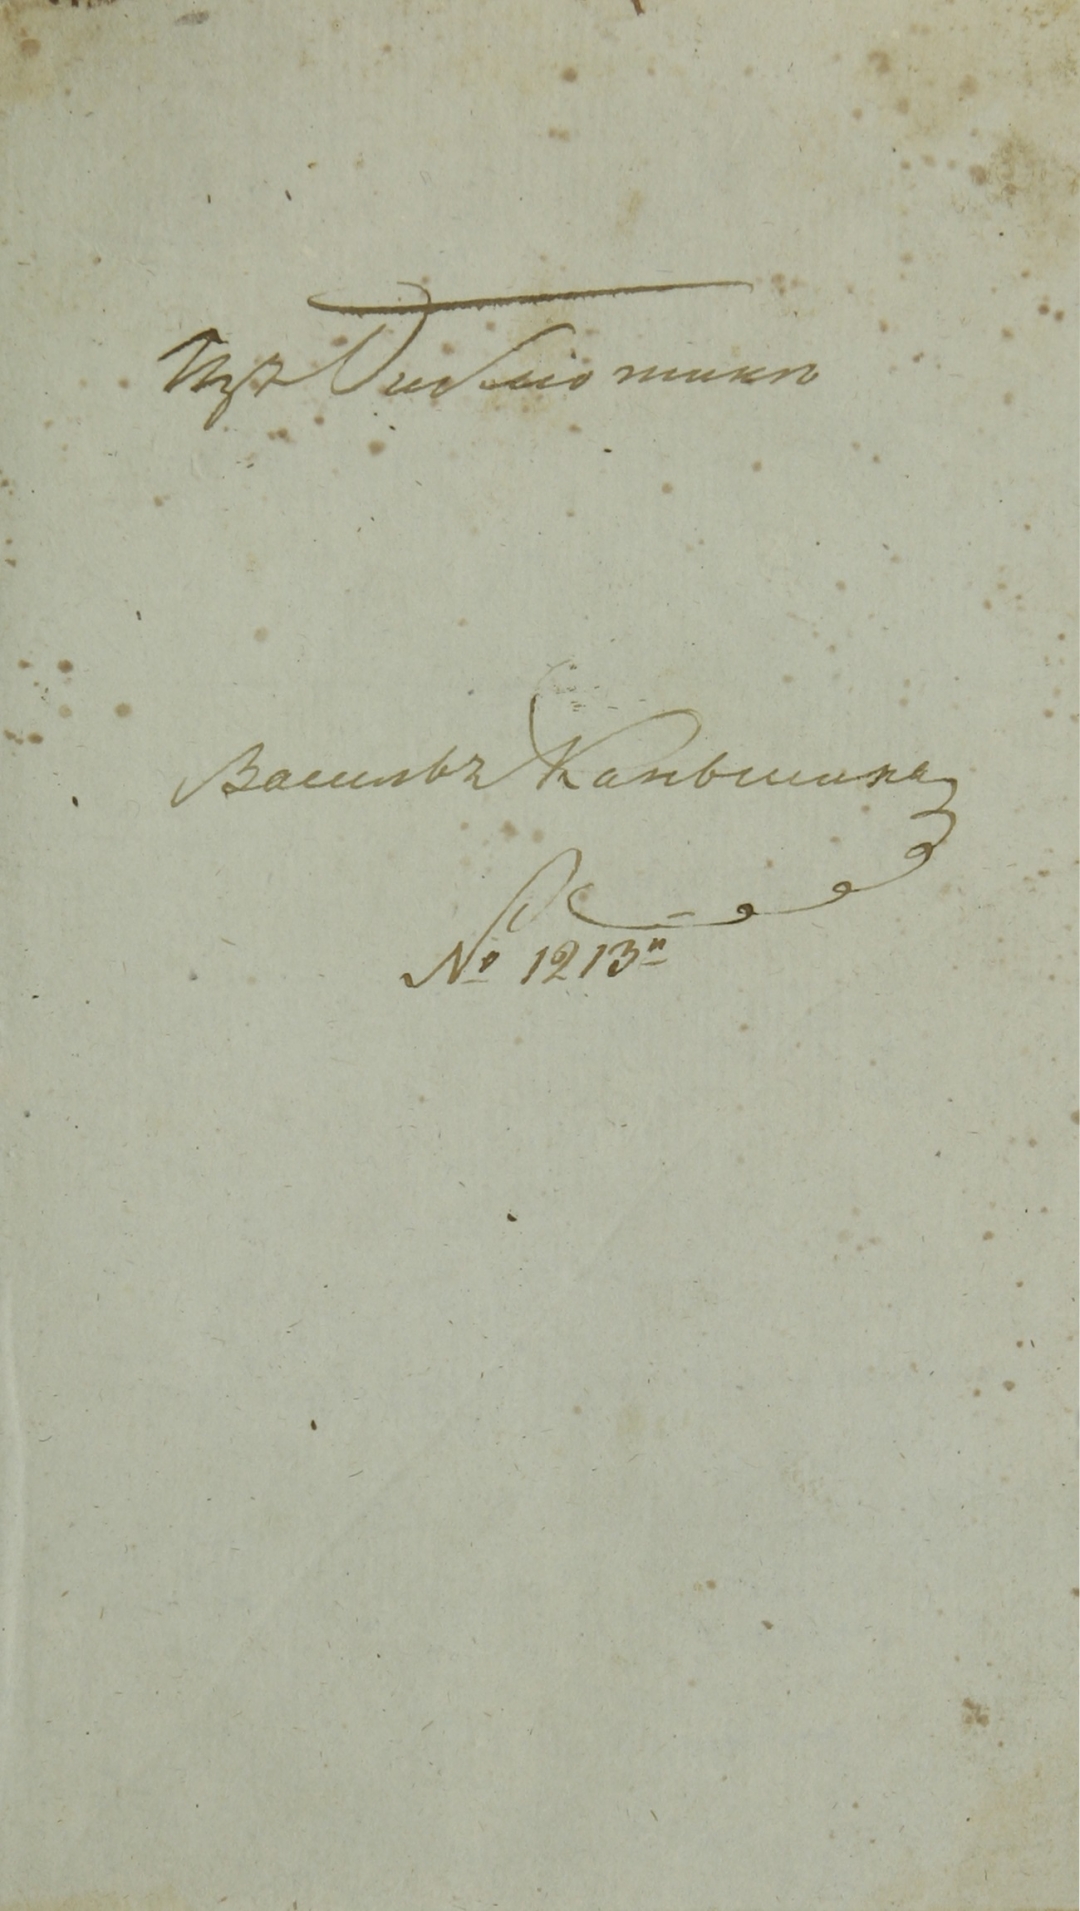 Изъ Библіотики
Василья Каньшина
№ 1213й